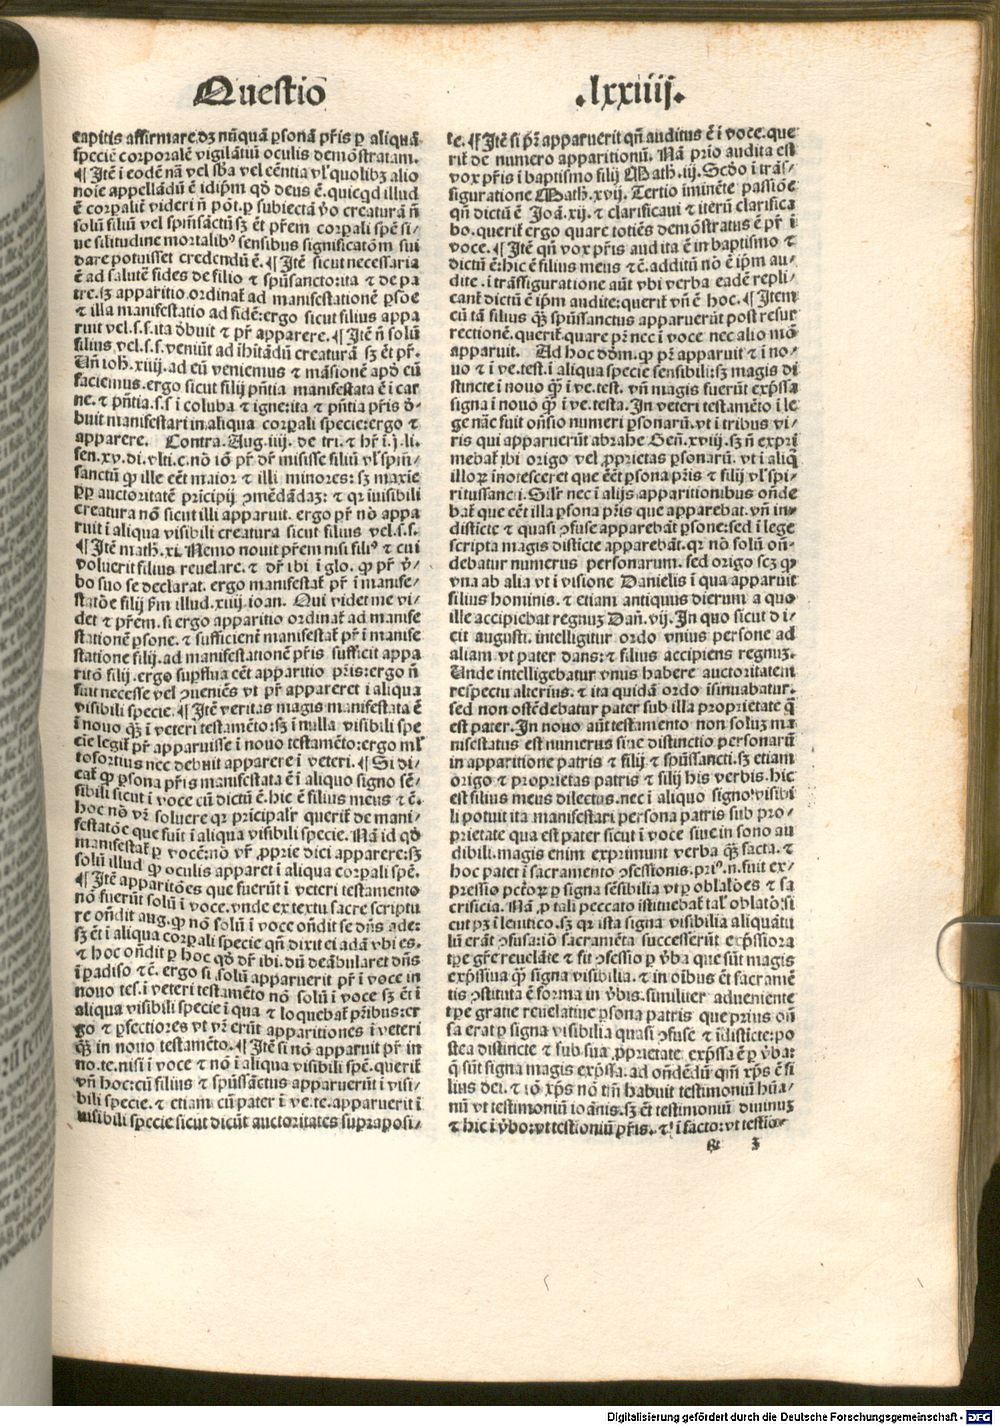 Questio .lxxiiij.
capitis affirmare.dꝫ nūquā ꝑsonā pr̄is ꝑ aliquā
speciē corporalē vigilātiū oculis demōstratam.
¶ Itē ī eodē nā vel sb̄a vel eētia vl̓ quolibꝫ alio
noīe appellādū ē idip̄m qd̓ deus ē.quicqd illud
ē corpalit̓ videri n̄ pōt.ꝑ subiectā ṽo creaturā n̄
solū filiū vel spm̄sāctū sꝫ ēt pr̄em corpali spē si/
ue silitudine mortalibꝰ sensibus significatōm sui
dare potuisset credendū ē.¶ Itē sicut necessaria
ē ad salutē fides de filio ⁊ spūsancto.ita ⁊ de pa
tre.sꝫ apparitio.ordinat̓ ad manifestationē ꝑsoē
⁊ illa manifestatio ad fidē:ergo sicut filius appa
ruit vel.s.s.ita d̓buit ⁊ pr̄ apparere.¶ Itē n̄ solū
filius vel.s.s.veniūt ad īhītādū creaturā sꝫ ēt pr̄.
Un̄ ioh̄.xiiij.ad eū veniemus ⁊ māsionē apd̓ eū
faciemus.ergo sicut filij pn̄tia manifestata ē ī car
ne.⁊ pn̄tia.s.s ī coluba ⁊ igne:ita ⁊ pn̄tia pr̄is d̓-
buit manifestari in aliqua corpali specie:ergo ⁊
apparere. Contra.Aug.iiij. de tri.⁊ hr̄ ī.j.li.
sen.xv.di.vlti.c.nō iō pr̄ dr̄ misisse filiū vl̓ spm̄/
sanctū qꝫ ille eēt maior ⁊ illi minores: sꝫ maxie
ꝓp̱ auctoritatē prīcipij ꝯmēdādaꝫ: ⁊ qꝛ īuisibili
creatura nō sicut illi apparuit. ergo pr̄ nō appa
ruit ī aliqua visibili creatura sicut filius vel.s.s.
¶ Itē math̓.xi.Nemo nouit pr̄em nisi filiꝰ ⁊ cui
voluerit filius reuelare.⁊ dr̄ ibi ī glo. qꝫ pr̄ ṽ/
bo suo se declarat. ergo manifestat̓ pr̄ ī manife/
statōe filij ꝑm illud.xiiij.ioan. Qui videt me vi/
det ⁊ pr̄em.si ergo apparitio ordinat̓ ad manife
stationē ꝑsone.⁊ sufficient̓ manifestat̓ pr̄ ī manife
statione filij.ad manifestationē pr̄is sufficit appa
ritō filij.ergo supflua eēt apparitio pr̄is:ergo n̄
fuit necesse vel ꝯueniēs vt pr̄ appareret ī aliqua
visibili specie.¶ Itē veritas magis manifestata ē
ī nouo qꝫ̄ ī veteri testamēto:sꝫ ī nulla visibili spe
cie legit̓ pr̄ apparuisse ī nouo testamēto:ergo ml̓
tofortius nec debuit apparere ī veteri.¶ Si di/
cat̓ qꝫ ꝑsona pr̄is manifestata ē ī aliquo signo sē/
sibili sicut ī voce cū dictū ē.hic ē filius meus ⁊ c̄.
hoc nō vr̄ soluere qꝛ prīcipalr̄ querit̓ de mani/
festatōe que fuit ī aliqua visibili specie. Nā id qd̓
manifestat̓ ꝑ vocē:nō vr̄ ꝓprie dici apparere:sꝫ
solū illud qꝫ oculis apparet ī aliqua corpali spē.
¶ Itē apparitōes que fuerūt ī veteri testamento
nō fuerūt solū ī voce.vnde ex textu sacre scriptu
re on̄dit aug.qꝫ nō solū ī voce on̄dit se dn̄s ade:
sꝫ ēt ī aliqua corpali specie qn̄ dixit ei adā vbi es.
⁊ hoc on̄dit ꝑ hoc qd̓ dr̄ ibi.dū deābularet dn̄s
ī padiso ⁊ c̄. ergo si solū apparuerit pr̄ ī voce in
nouo tes.ī veteri testamēto nō solū ī voce sꝫ ēt ī
aliqua visibili specie ī qua ⁊ loquebat̓ pr̄ibus:er
go ⁊ ꝑfectiores vt vr̄ erūt apparitiones ī veteri
qꝫ̄ in nouo testamēto.¶ Itē si nō apparuit pr̄ in
no.te.nisi ī voce ⁊ nō ī aliqua visibili spē.querit̓
vn̄ hoc:cū filius ⁊ spūssāctus apparuerūt ī visi/
bili specie.⁊ etiam cū pater ī ve.te.apparuerit ī
visibili specie sicut dicūt auctoritates supraposi/
te.¶ Itē si pr̄ apparuerit qn̄ auditus ē ī voce.que
rit̓ de numero apparitionū. Nā prīo audita est
vox pr̄is ī baptismo filij Math̓.iij.Scd̓o ī trās/
figuratione Math̓.xvij. Tertio īminēte passiōe
qn̄ dictū ē Ioā.xij.⁊ clarificaui ⁊ iterū clarifica
bo.querit̓ ergo quare totiēs demōstratus ē pr̄ ī
voce.¶ Itē qn̄ vox pr̄is audita ē in baptismo ⁊
dictū ē:hic ē filius meus ⁊ c̄.additū nō ē ip̄m au-
dite.ī trāsfiguratione aūt vbi verba eadē repli/
cant̓ dictū ē ip̄m audite:querit̓ vn̄ ē hoc.¶ Item
cū tā filius qꝫ̄ spūssanctus apparuerūt post resur
rectionē.querit̓.quare pr̄ nec ī voce nec alio mō
apparuit. Ad hoc dōm.qꝫ pr̄ apparuit ⁊ ī no/
uo ⁊ ī ve.test.ī aliqua specie sensibili:sꝫ magis di
stincte ī nouo qꝫ̄ ī ve.test. vn̄ magis fuerūt exp̄ssa
signa ī nouo qꝫ̄ ī ve.testa.In veteri testamēto ī le
ge nāe fuit on̄sio numeri ꝑsonarū.vt ī tribus vi/
ris qui apparuerūt abrahe Gen̄.xviij.sꝫ n̄ exprī
mebat̓ ibi origo vel ꝓprietas ꝑsonarū. vt ī aliqͦ
illoꝝ īnotesceret que eēt ꝑsona pr̄is ⁊ filij vl̓ spi/
ritussancti.Silr̄ nec ī alijs apparitionibus on̄de
bat̓ que eēt illa ꝑsona pr̄is que apparebat.vn̄ in-
disticte ⁊ quasi ꝯfuse apparebāt ꝑsone:sed ī lege
scripta magis disticte apparebāt.qꝛ nō solū on̄-
debatur numerus personarum. sed origo scꝫ qꝫ
vna ab alia vt ī visione Danielis ī qua apparuit
filius hominis.⁊ etiam antiquus dierum a quo
ille accipiebat regnuꝫ Dan̄.vij.In quo sicut di
cit augusti.intelligitur ordo vnius persone ad
aliam vt pater dans:⁊ filius accipiens regnuꝫ.
Unde intelligebatur vnus habere auctoritatem
respectu alterius.⁊ ita quidā ordo īsinuabatur.
sed non ostēdebatur pater sub illa proprietate qͣ
est pater.In nouo aūt testamento non soluꝫ ma
nifestatus est numerus siue distinctio personarū
in apparitione patris ⁊ filij ⁊ spūssancti.sꝫ etiam
origo ⁊ proprietas patris ⁊ filij his verbis.hic
est filius meus dilectus.nec ī aliquo signo visibi
li potuit ita manifestari persona patris sub pro/
prietate qua est pater sicut ī voce siue in sono au
dibili.magis enim exprimunt verba qꝫ̄ facta.⁊
hoc patet ī sacramento ꝯfessionis.priꝰ.n.fuit ex/
pressio pctōꝝ ꝑ signa sēsibilia vt ꝑ oblatōes ⁊ sa
crificia. Nā ꝓ tali peccato īstituebat̓ tal̓ oblatō:si
cut pꝫ ī leuitico.sꝫ qꝛ ista signa visibilia aliquātu
lū erāt ꝯfusa:iō sacramēta successerūt exp̄ssiora
tpe gr̄e reuelāte ⁊ fit ꝯfessio ꝑ ṽba que sūt magis
exp̄ssiua qꝫ̄ signa visibilia.⁊ in oībus ēt sacramē
tis ꝯstituta ē forma in ṽbis.similiter adueniente
tpe gratie reuelatiue ꝑsona patris que prius on̄
sa erat ꝑ signa visibilia quasi ꝯfuse ⁊ īdisticte:po
stea distincte ⁊ sub sua ꝓprietate exp̄ssa ē ꝑ ṽba:
qͣ sūt signa magis exp̄ssa.ad on̄dēdū qn̄ xp̄s ē fi
lius dei.⁊ iō xp̄s nō tm̄ habuit testimoniū hūa/
nū vt testimoniū ioānis.sꝫ ēt testimoniū diuinuꝫ
⁊ hic ī ṽbo:vt testioniū pr̄is.⁊ ī facto:vt testio
R 3
Digitalisierung gefördert durch die Deutsche Forschungsgemeinschaft - DFG